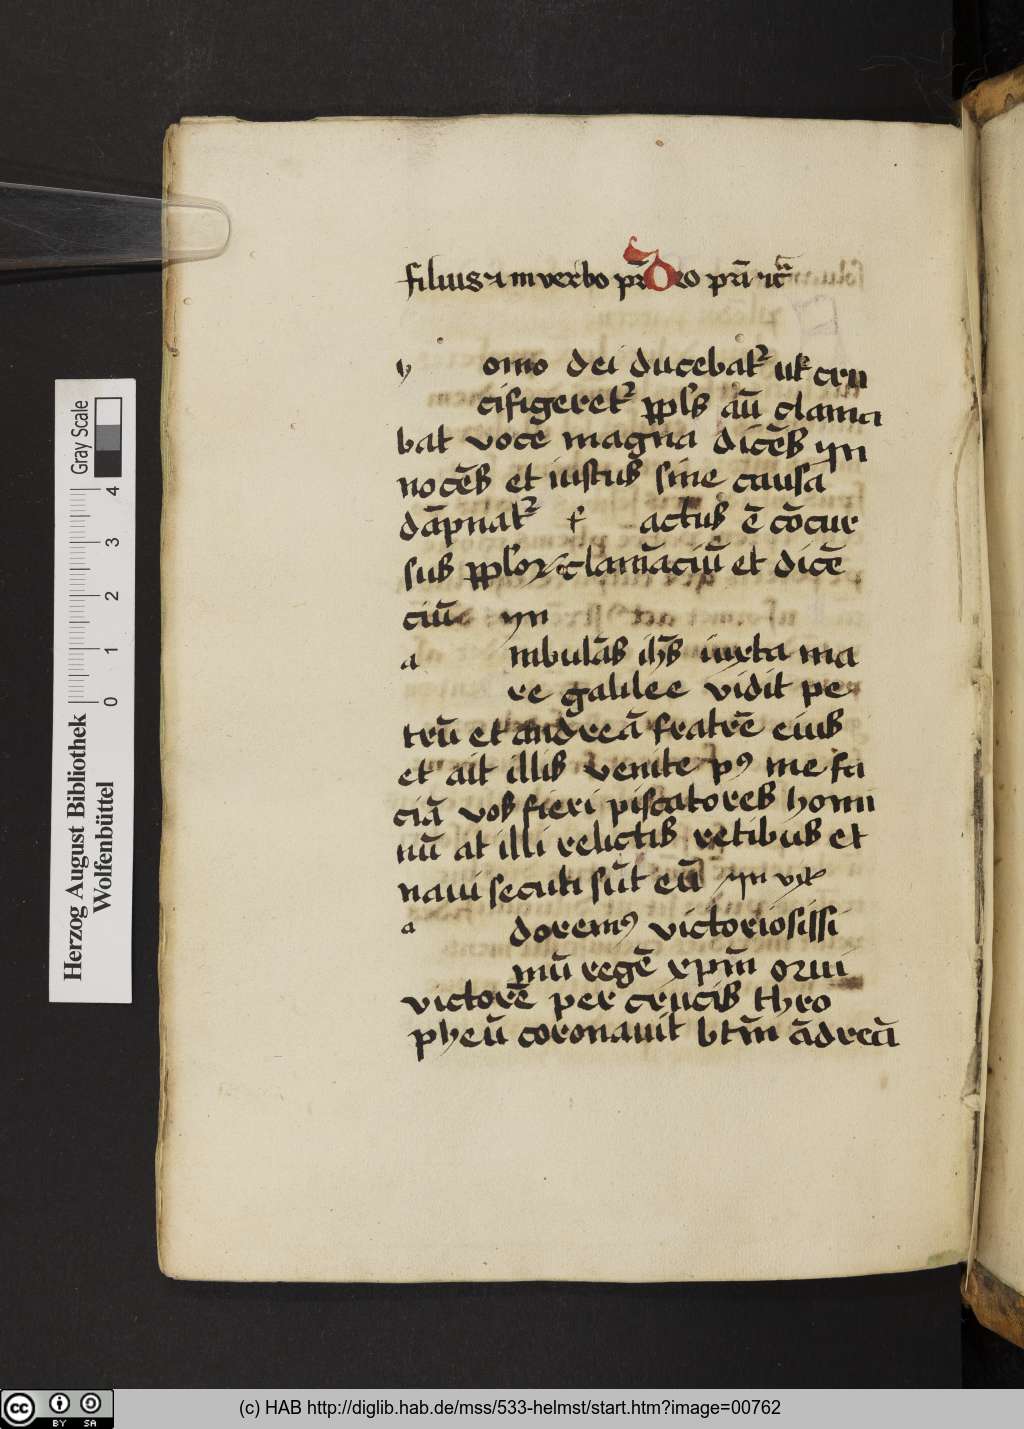 filius ⁊ in verbo pr̄ Deo pr̄i ⁊cͣ
y omo dei ducebat᷑ ut cru
cifigeret᷑ ppl̄s aū clama
bat voce magna dicēs yn
nocēs et iustus sine causa
dāpnat᷑ f actus ē cōcur
sus pplorꝝ clamāciū et dicē
ciū yn
a mbulās ihs̄ iuxta ma
re galilee vidit pe
trū et andreā fratrē eius
et ait illis venite pꝰ me fa
ciā vos fieri piscatores homi
nū at illi relictis retibus et
naui secuti sūt eū
a doremꝰ victoriosissi
mū regē xpm̄ qui
victorē per crucis thro
pheū coronauit btm̄ ādreā
Herzog August Bibliothek
Wolfenbüttel
0 1 2 3 4
Gray Scale
cc BY SA
(c) HAB http://diglib.hab.de/mss/533-helmst/start.htm?image=00762